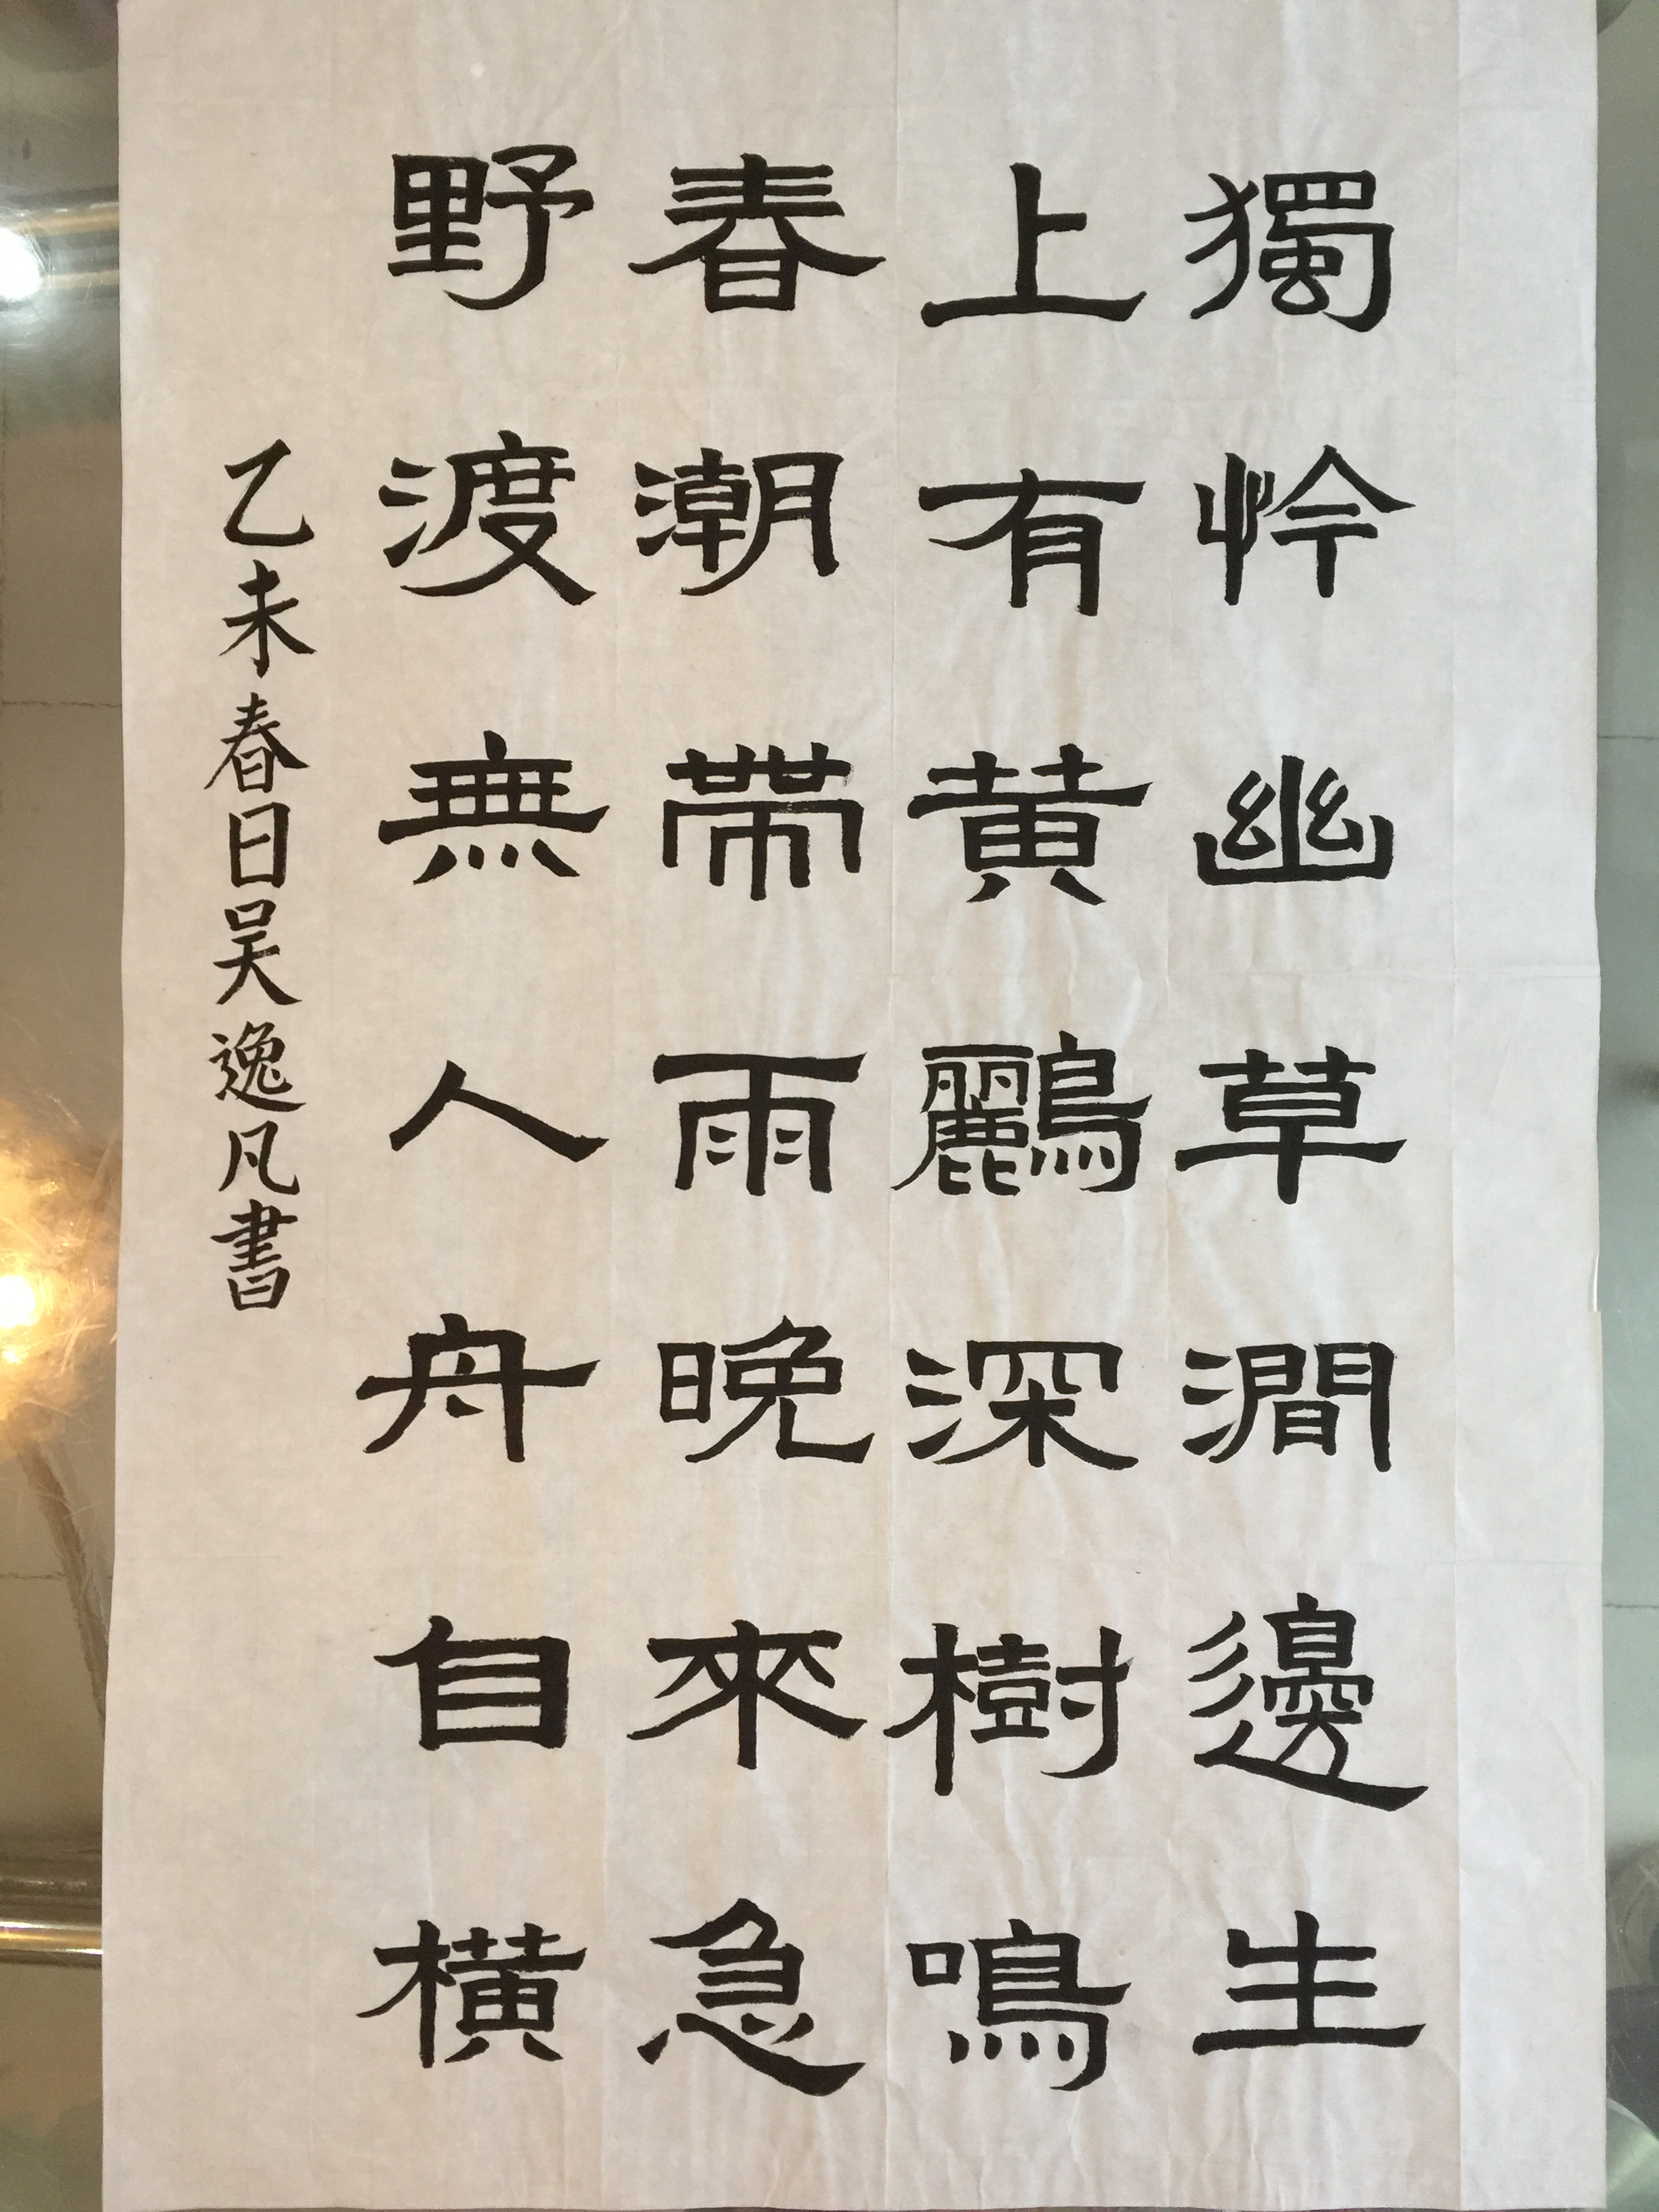 獨怜幽草澗邊生
上有黃鸝深樹鳴
春潮帶雨晚來急
野渡無人舟自橫
乙未春日吴逸凡書